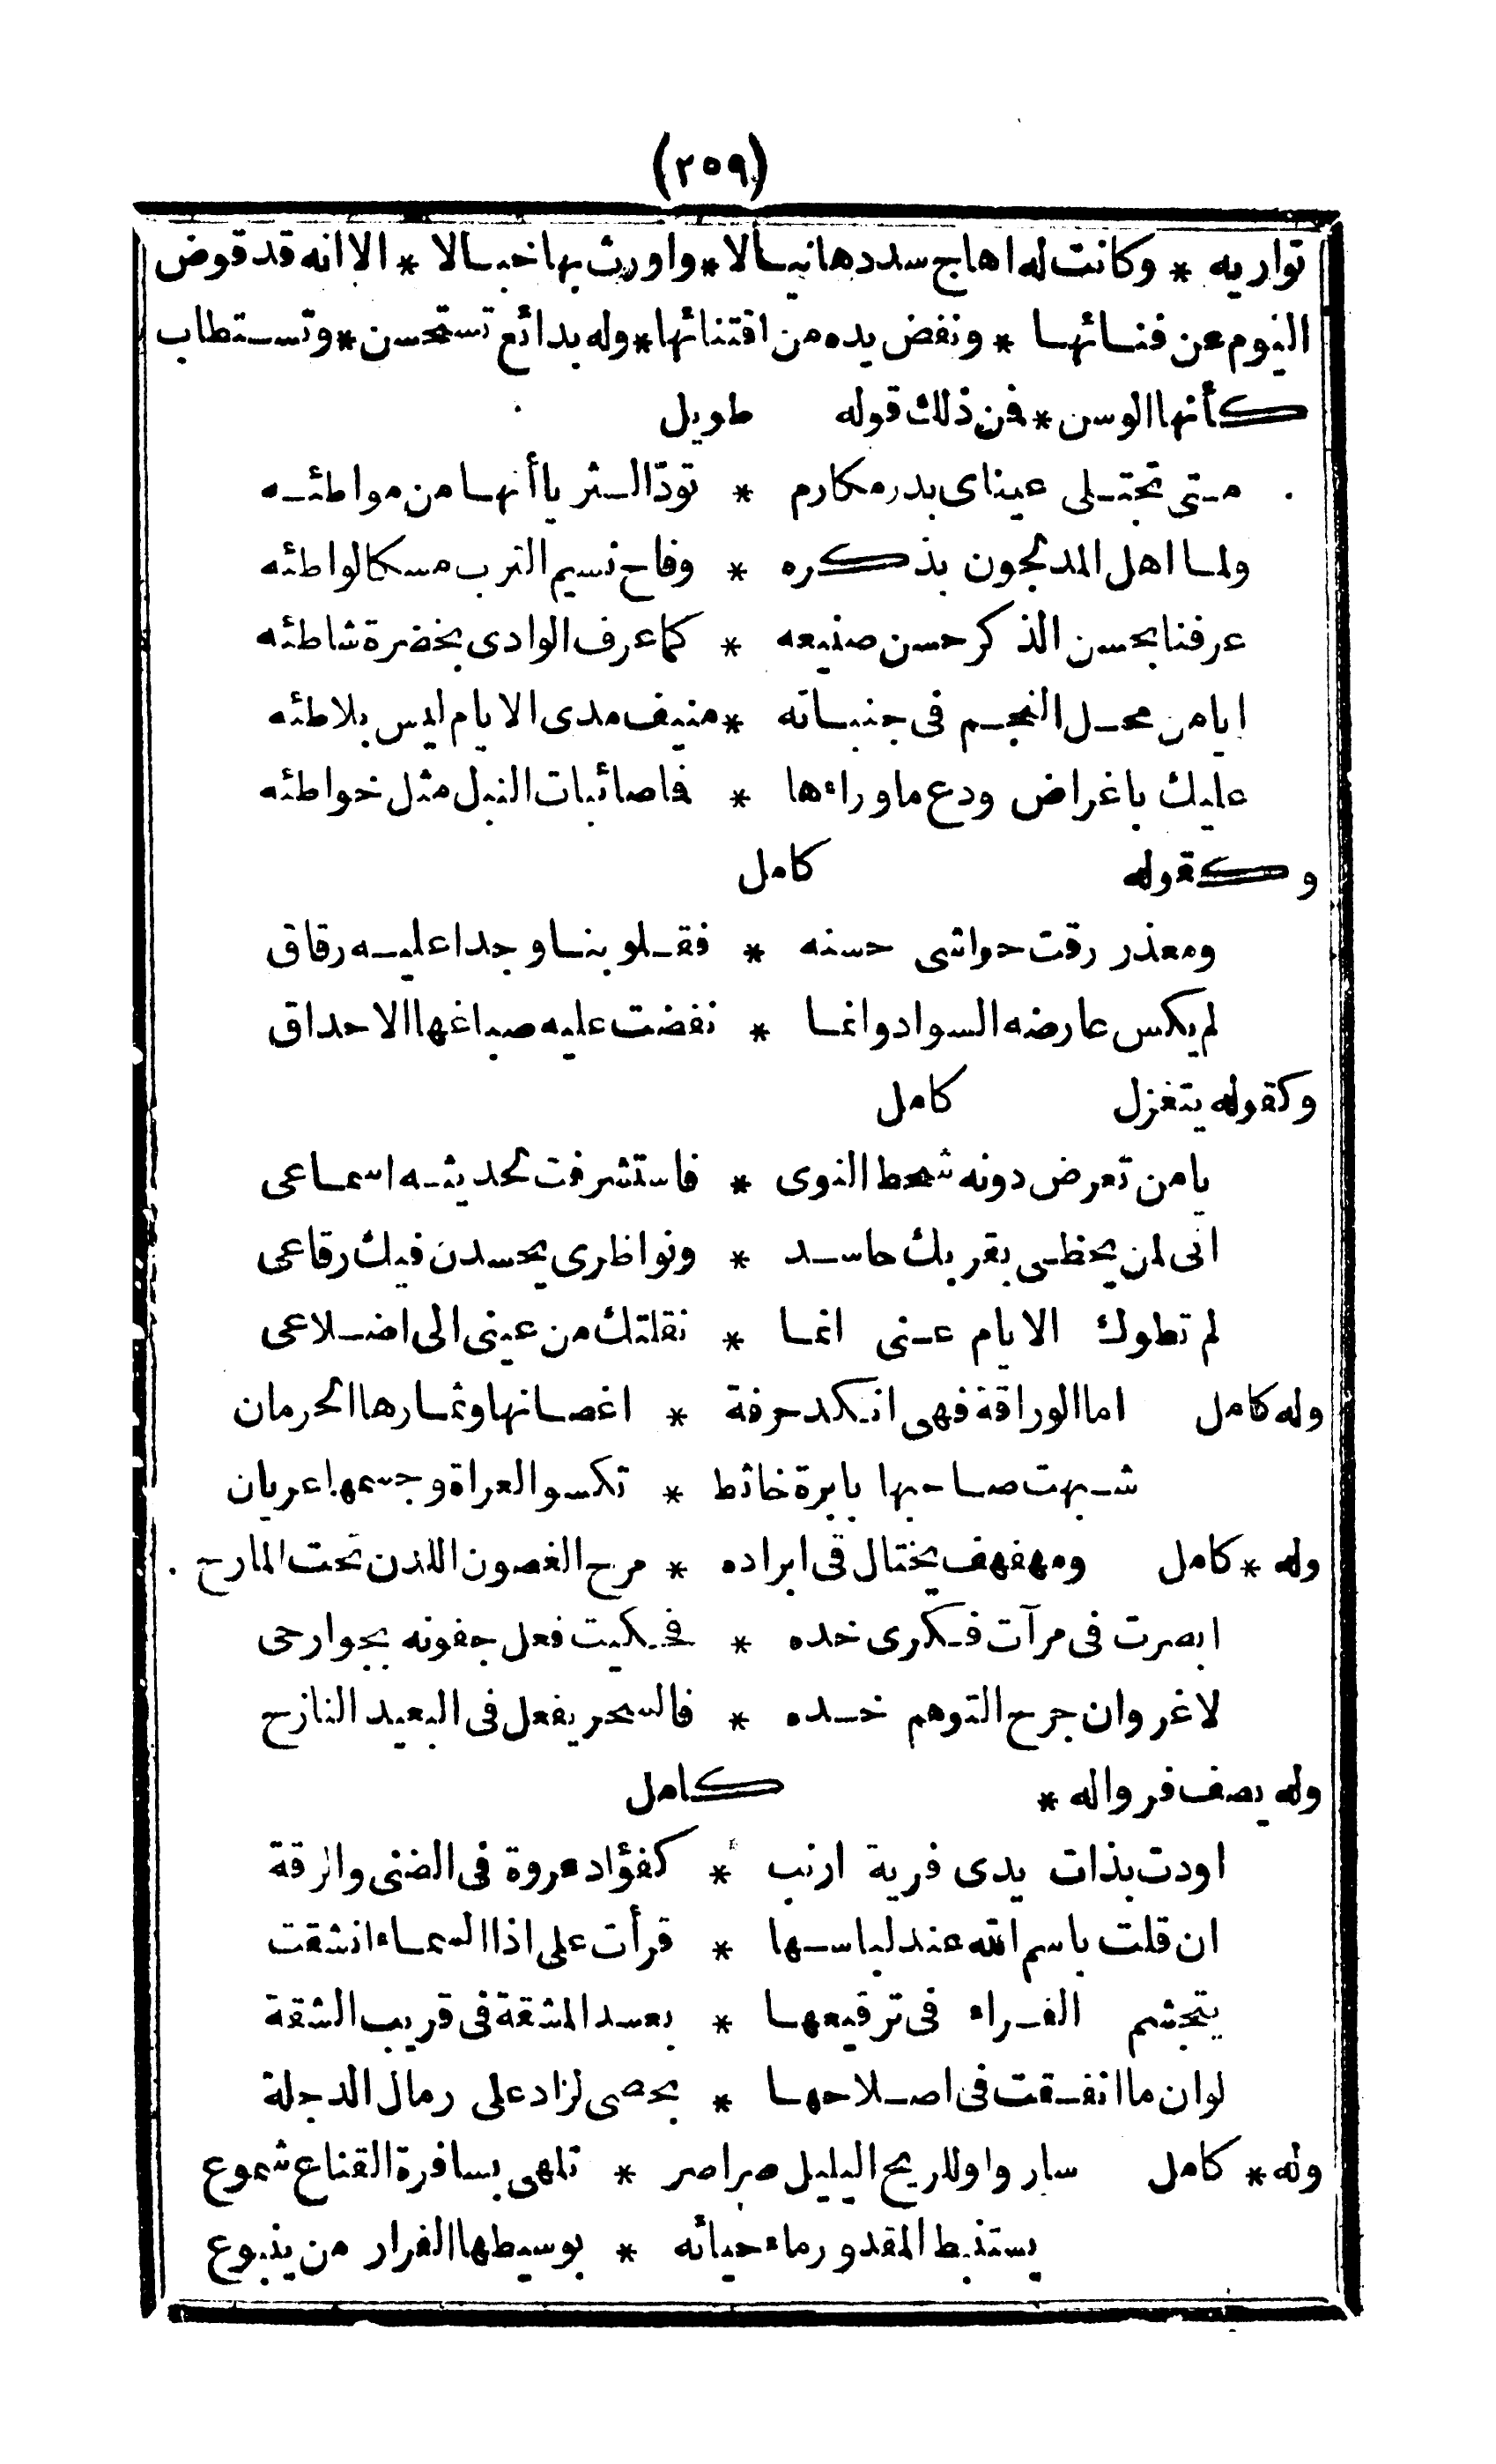 (٢٥٩)
تواريه * وكانت له اهاج سدد هانبالا * واورث بها خبالا * الا انه قد قوض
اليوم عن فنائها * ونفض يده من اقتنائها * وله بدائع تستحسن * وتستطاب
كأنها الوسن * فمن ذلك قوله طويل
متى تجتلى عيناى بدر مكارم * تودّ الثريا أنها من مواطئه
ولما اهل المدلجون بذكره * وفاح نسيم الترب مسكا لواطئه
عرفنا بحسن الذكر حسن صنيعه * كما عرف الوادى بخضرة شاطئه
ايا من محل النجم فى جنباته * منيف مدى الايام ليس بلاطئه
عليك باغراض ودع ما وراءها * فما صائبات النبل مثل خواطئه
وكقوله كامل
ومعذر رقت حواشى حسنه * فقلوبنا وجدا عليه رقاق
لم يكس عارضه السواد وانما * نفضت عليه صباغها الاحداق
وكقوله يتغزل كامل
يا من تعرض دونه شحط النوى * فاستشرفت لحديثه اسماعى
انى لمن يحظى بقربك حاسد * ونواظرى يحسدن فيك رقاعى
لم تطوك الايام عنى انما * نقلتك من عينى الى اضلاعى
وله كامل اما الوراقة فهى انكد حرفة * اغصانها وثمارها الحرمان
شبهت صاحبها بابرة خائط * تكسو العراة وجسمها عريان
وله * كامل ومهفهف يختال فى ابراده * مرح الغصون اللدن تحت المارح
ابصرت فى مرآت فكرى خده * فحكيت فعل جفونه بجوارحى
لا غرو ان جرح التوهم خده * فالسحر يفعل فى البعيد النازح
وله يصف فروا له * كامل
اودت بذات يدى فرية ارنب * كفؤاد عروة فى الضنى والرقة
ان قلت باسم الله عند لباسها * قرأت على اذا السماء انشقت
يتجشم الفراء فى ترقيعها * بعد المشقة فى قريب الشقة
لو ان ما انفقت فى اصلاحها * يحصى لزاد على رمال الدجلة
وله * كامل ساروا وللريح البليل صراصر * تلهى بسافرة القناع شموع
يستنبط المقدور ماء حيائه * بوسيطها الفرار من ينبوع